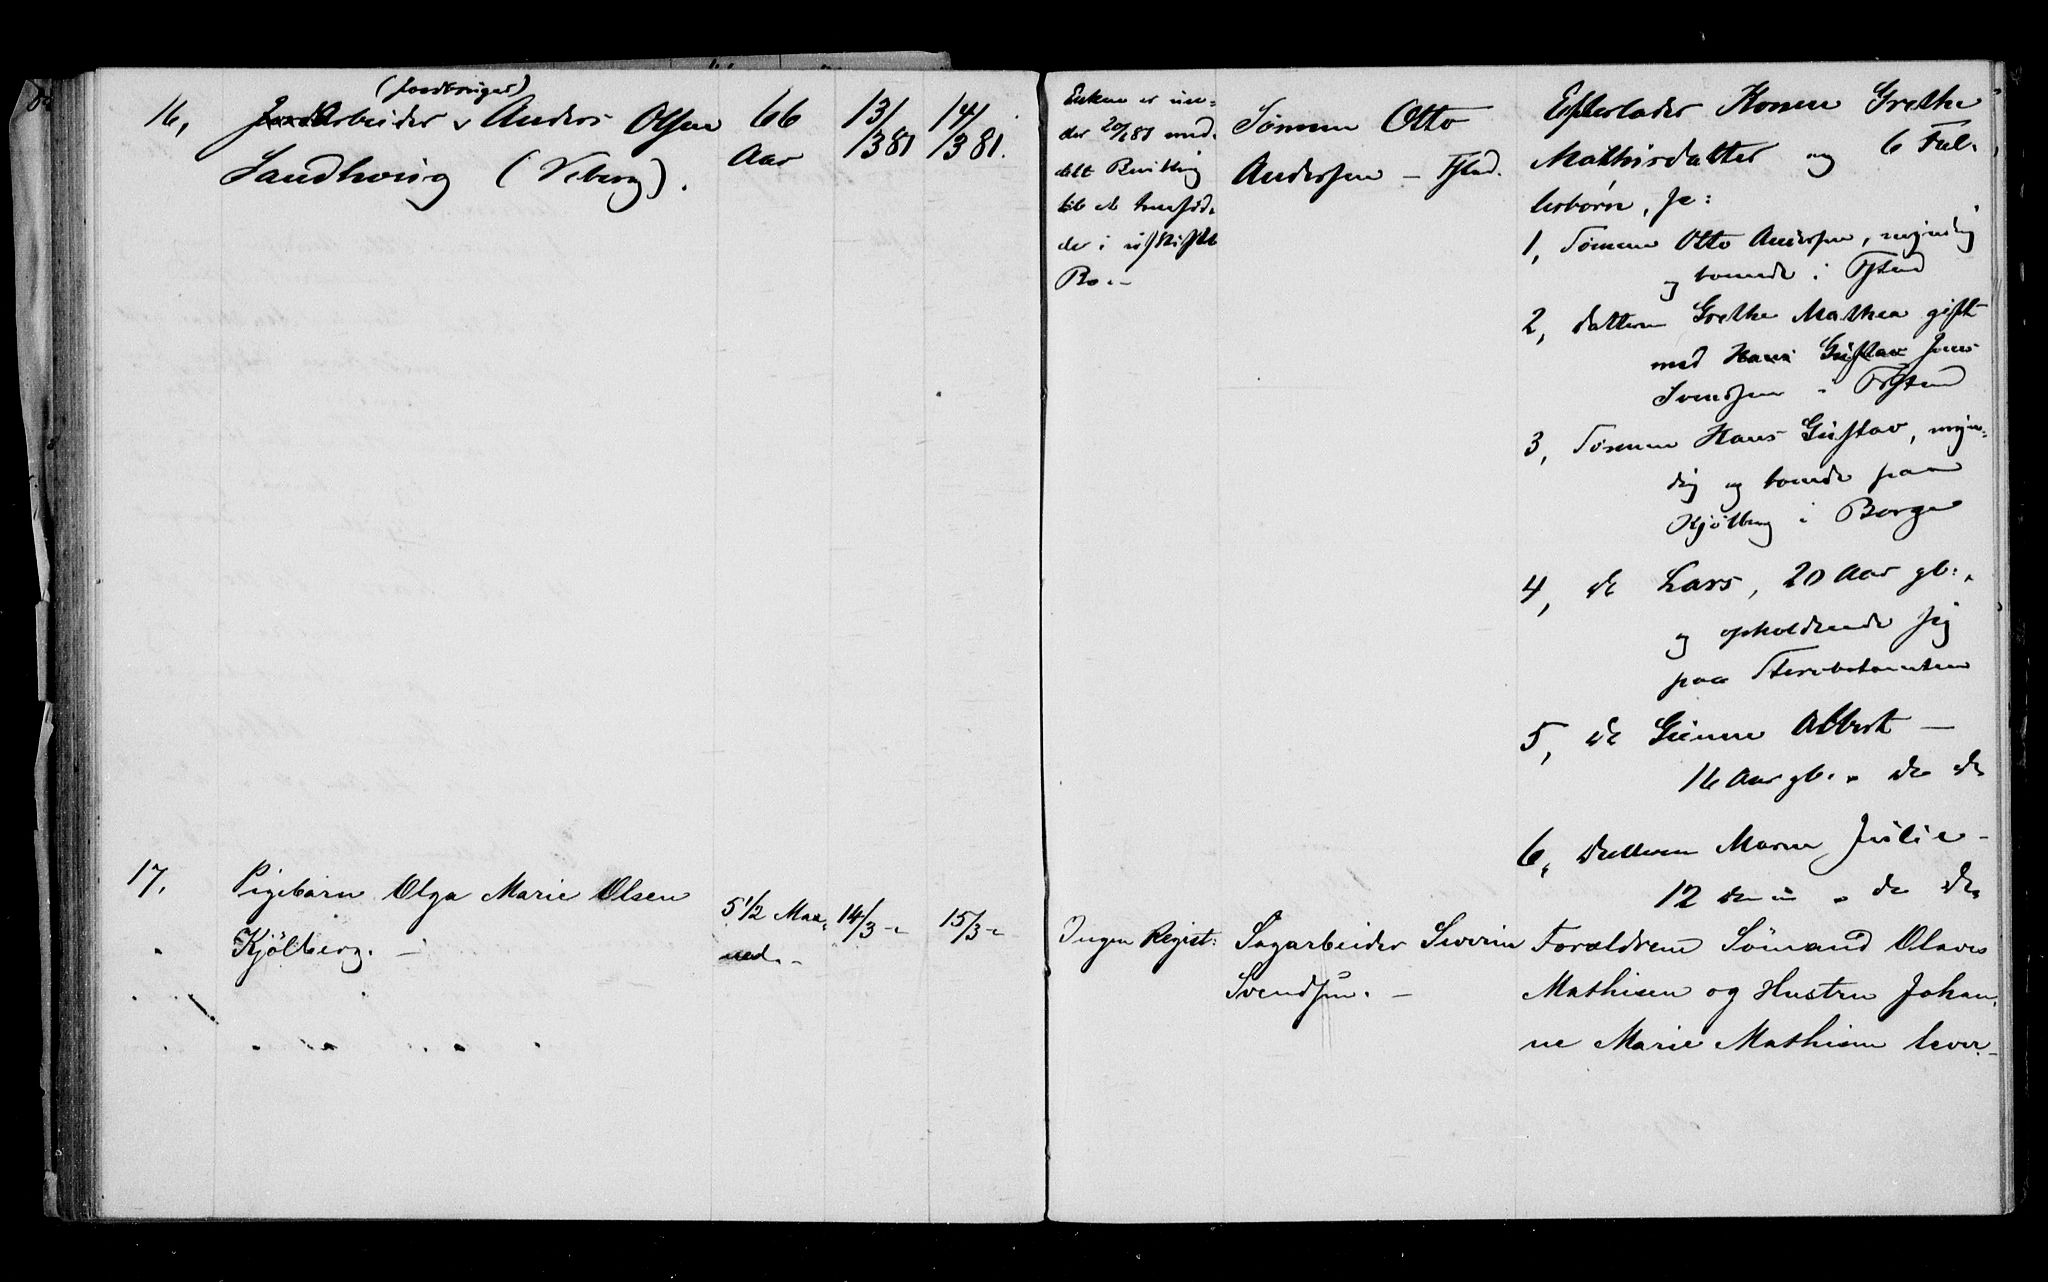 (Jordbruger)
16, Arbeider Anders Olsen
Sandhvig (Viberg).
66
Aar
13/
/381
14/
/381.
Enken er un-
der 20/ 81 med-
delt Bevilling
til at hensid-
de i uskiftet
Bo.-
Sønnen Otto
Andersen - Fstad.
Efterlader Konen Grethe
Mathisdatter og 6 Fæl-
lesbørn, sc:
1, Sønnen Otto Andersen, myndig
og boende i Fstad
2, datteren Grethe Mathea gift
med Hans Gustav Jens
Svendsen i Fstad
3, Sønnen Hans Gustav, myn-
dig og boende paa
Kjølberg i Borge
4, do Lars, 20 Aar gl.,
og opholdende sig
paa Stervbotomten
5, do Albert -
16 Aar gl. do do
6, datteren Maren Julie -
12 do do
17, Pigebarn Olga Marie Olsen
Kjölberg. -
5 1/2 Maa-
ned.-
14/3 -
15/3 -
Ingen Regist:
Sagarbeider Severin
Svendsen. -
Forældrene Sömand Olaves
Mathisen og Hustru Johan-
ne Marie Mathisen lever.-